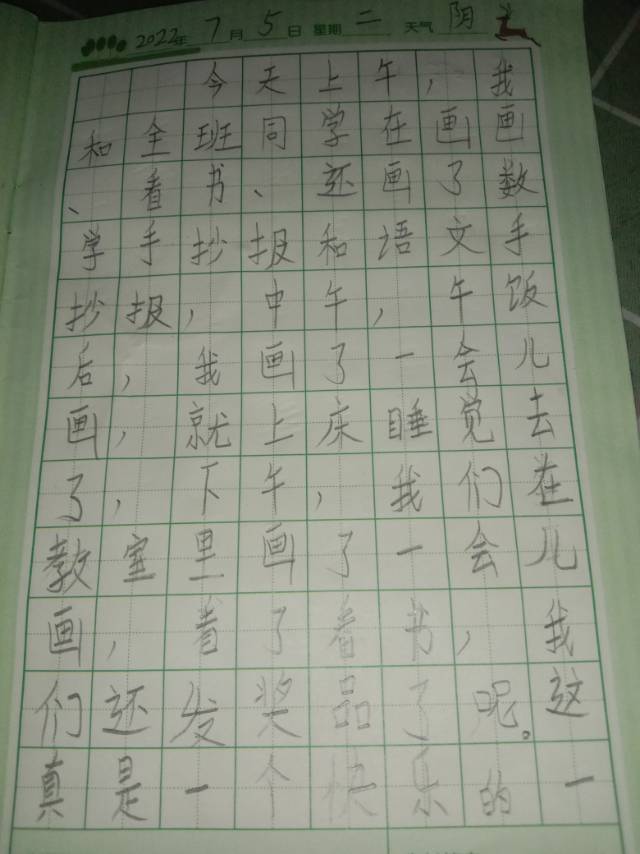 2022年7月5日 星期二 天气阴
今天上午，我
和全班同学在画画
、看书、还画了数
学手抄报和语文手
抄报，中午，午饭
后，我画了一会儿
画，就上床睡觉去
了，下午，我们在
教室里画了一会儿
画，看了看书，我
们还发奖品了呢。这
真是一个快乐的一